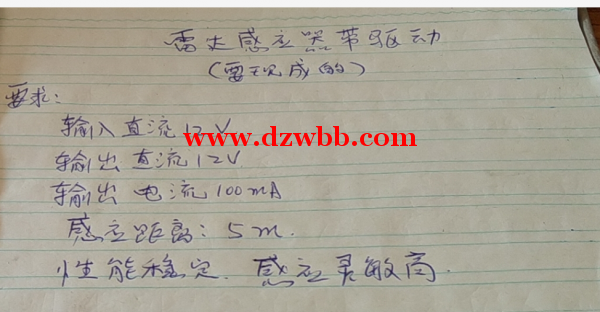 雷达感应器带驱动
(要现成的)
要求:
输入直流12V
www.dzwbb.com
输出直流12V
输出电流100mA
感应距离:5m.
性能稳定.感应灵敏高.